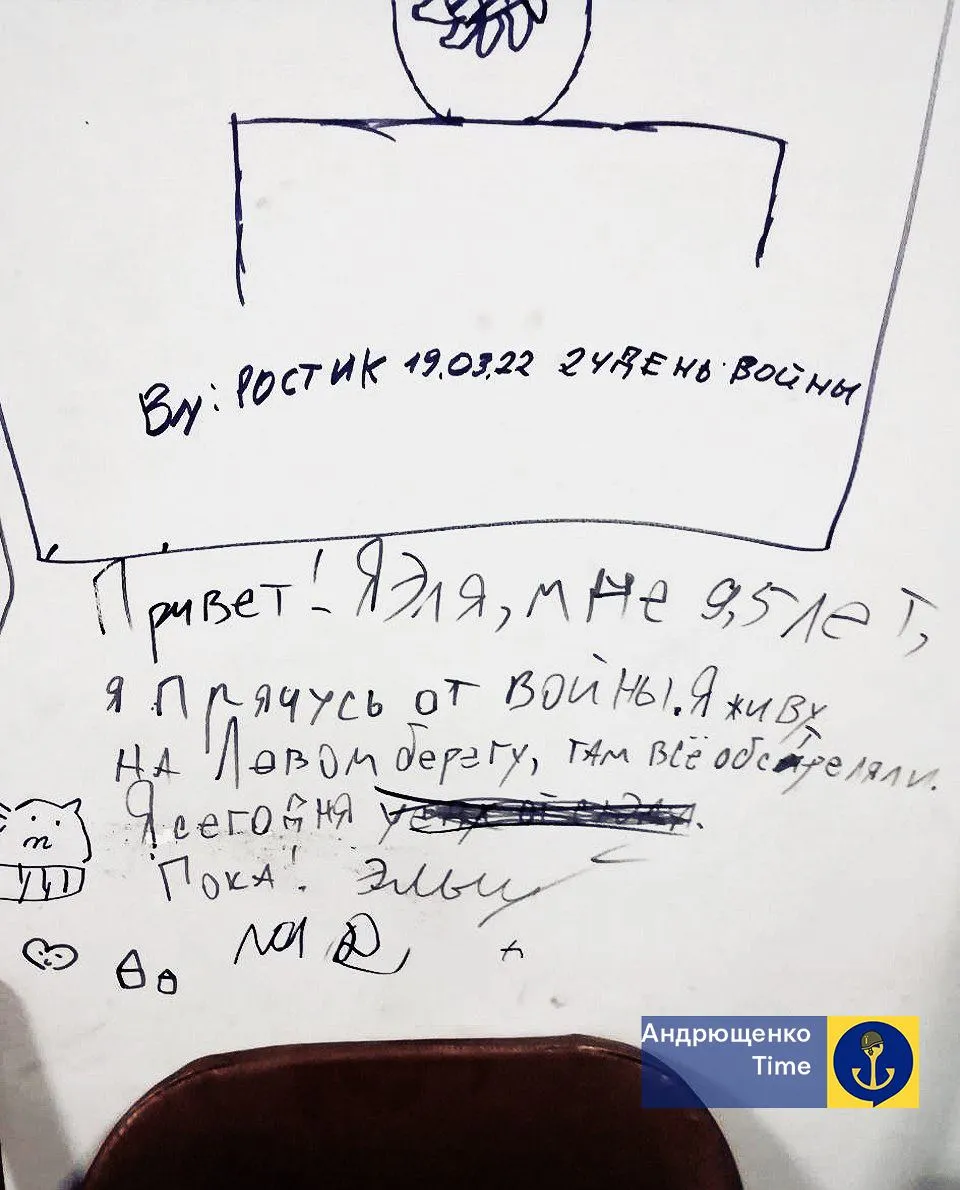 Ву: РОСТИК 19.03.22 24 ДЕНЬ ВОЙНЫ
Привет! Я Эля, мне 9,5 лет,
я прячусь от войны. Я живу
на Левом берегу, там всё обстреляли.
Я сегодня
Пока!
Андрющенко
Time